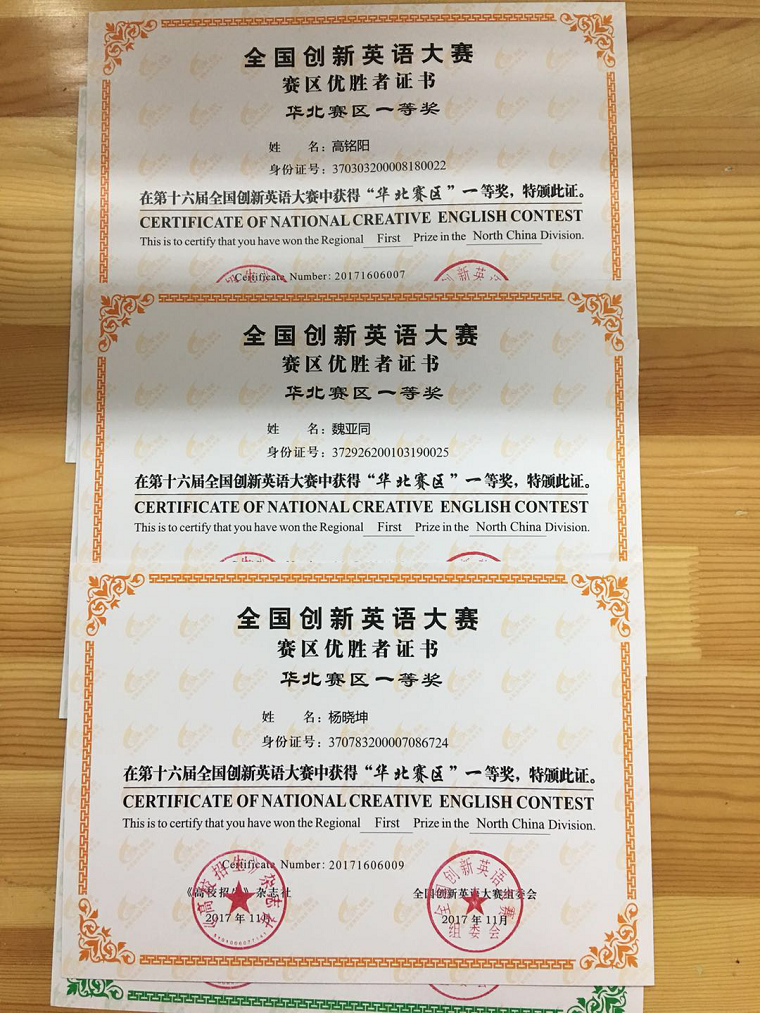 全国创新英语大赛
赛区优胜者证书
华北赛区一等奖
姓 名：高铭阳
身份证号：370303200008180022
在第十六届全国创新英语大赛中获得“华北赛区”一等奖，特颁此证。
CERTIFICATE OF NATIONAL CREATIVE ENGLISH CONTEST
This is to certify that you have won the Regional First Prize in the North China Division.
Certificate Number: 20171606007
全国创新英语大赛
赛区优胜者证书
华北赛区一等奖
姓 名：魏亚同
身份证号：372926200103190025
在第十六届全国创新英语大赛中获得“华北赛区”一等奖，特颁此证。
CERTIFICATE OF NATIONAL CREATIVE ENGLISH CONTEST
This is to certify that you have won the Regional First Prize in the North China Division.
全国创新英语大赛
赛区优胜者证书
华北赛区一等奖
姓 名：杨晓坤
身份证号：370783200007086724
在第十六届全国创新英语大赛中获得“华北赛区”一等奖，特颁此证。
CERTIFICATE OF NATIONAL CREATIVE ENGLISH CONTEST
This is to certify that you have won the Regional First Prize in the North China Division.
Certificate Number: 20171606009
《高校招生》杂志社
全国创新英语大赛组委会
2017 年 11月
2017 年 11月
《高校招生》杂志社
全国创新英语大赛
组委会